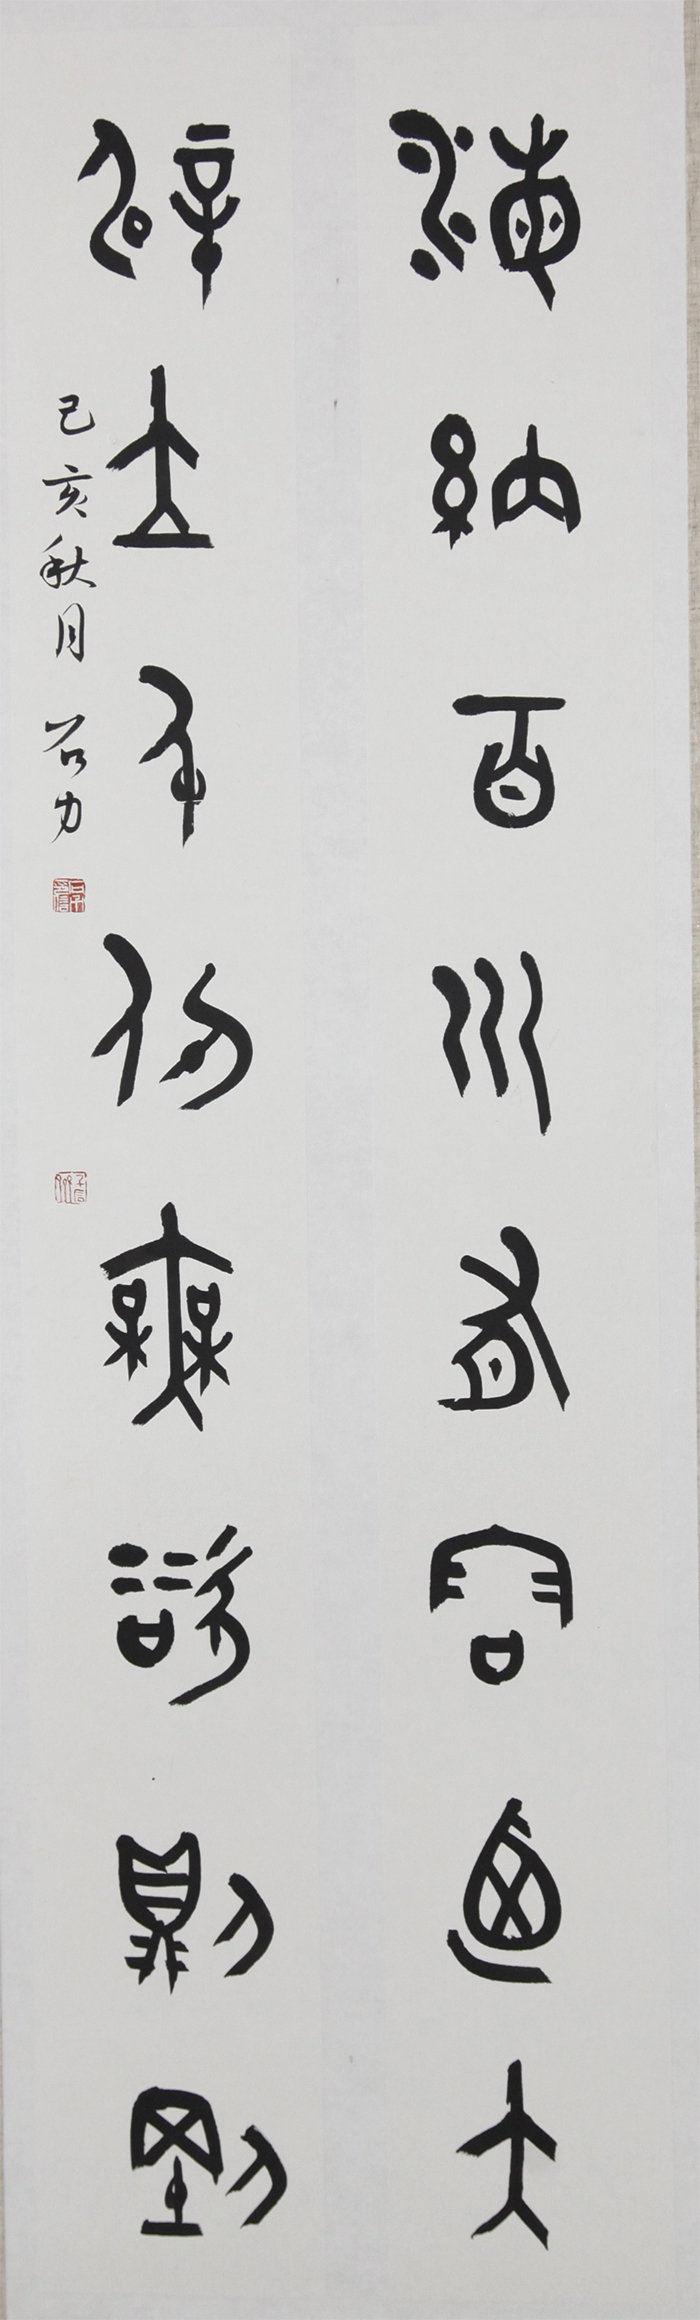 海納百川有容迺大
辟立千仞無欲則剛
己亥秋月